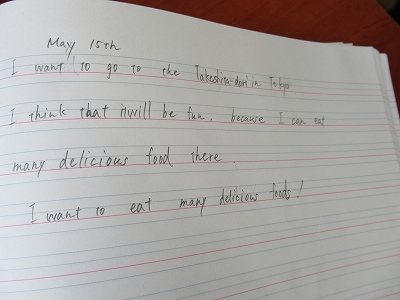 May 15th
I want to go to the Takeshita-dori in Tokyo
I think that it will be fun. because I can eat
many delicious food there.
I want to eat many delicious foods!